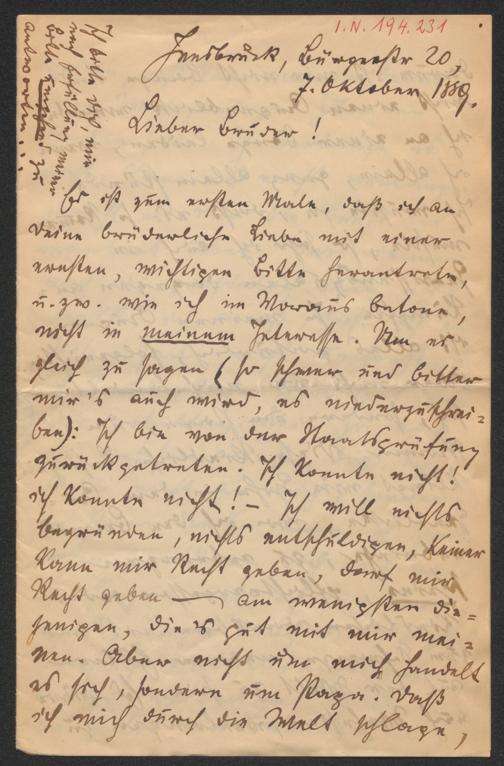 I.N. 194.231
Ich bitte Dich, mir
nach Erfüllung meiner
Bitte umgehend zu
antworten.
Innsbruck, Bürgerstr 20,
7. Oktober 1889.
Lieber Bruder!
Es ist zum ersten Male, daß ich an
Deine brüderliche Liebe mit einer
ernsten, wichtigen Bitte herantrete,
u. zw. wie ich im Voraus betone,
nicht in meinem Interesse. Um es
gleich zu sagen (so schwer und bitter
mir's auch wird, es niederzuschrei=
ben): Ich bin von der Staatsprüfung
zurückgetreten. Ich konnte nicht!
ich konnte nicht! — Ich will nichts
begründen, nichts entschuldigen, keiner
kann mir Recht geben, darf mir
Recht geben — am wenigsten die=
jenigen, die's gut mit mir mei=
nen. Aber nicht um mich handelt
es sich, sondern um Papa. Daß
ich mich durch die Welt schlage,